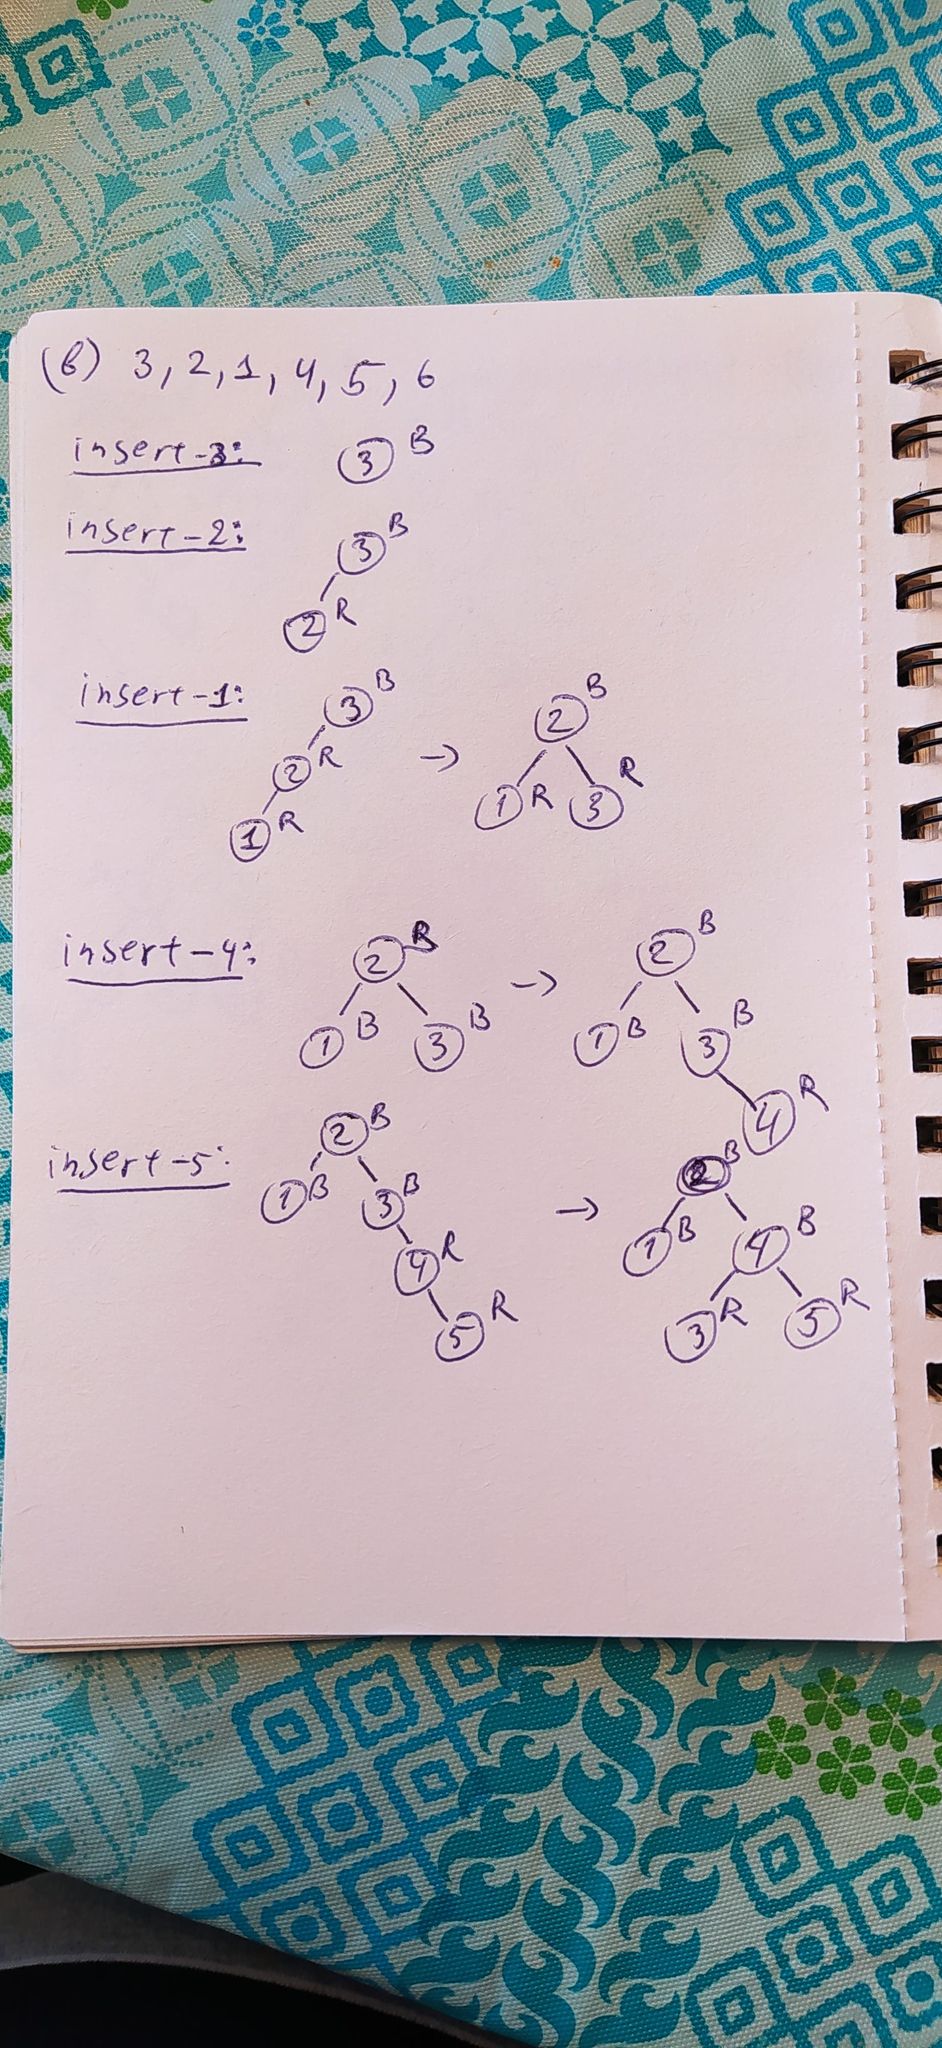 (b) 3, 2, 1, 4, 5, 6
insert-3: 3 B
insert-2: 3 B
2 R
insert-1: 3 B
2 R
1 R
→
2 B
1 R 3 R
insert-4: 2 B
1 B 3 B
→
2 B
1 B 3 B
4 R
insert-5: 2 B
1 B 3 B
4 R
5 R
→
2 B
1 B 4 B
3 R 5 R